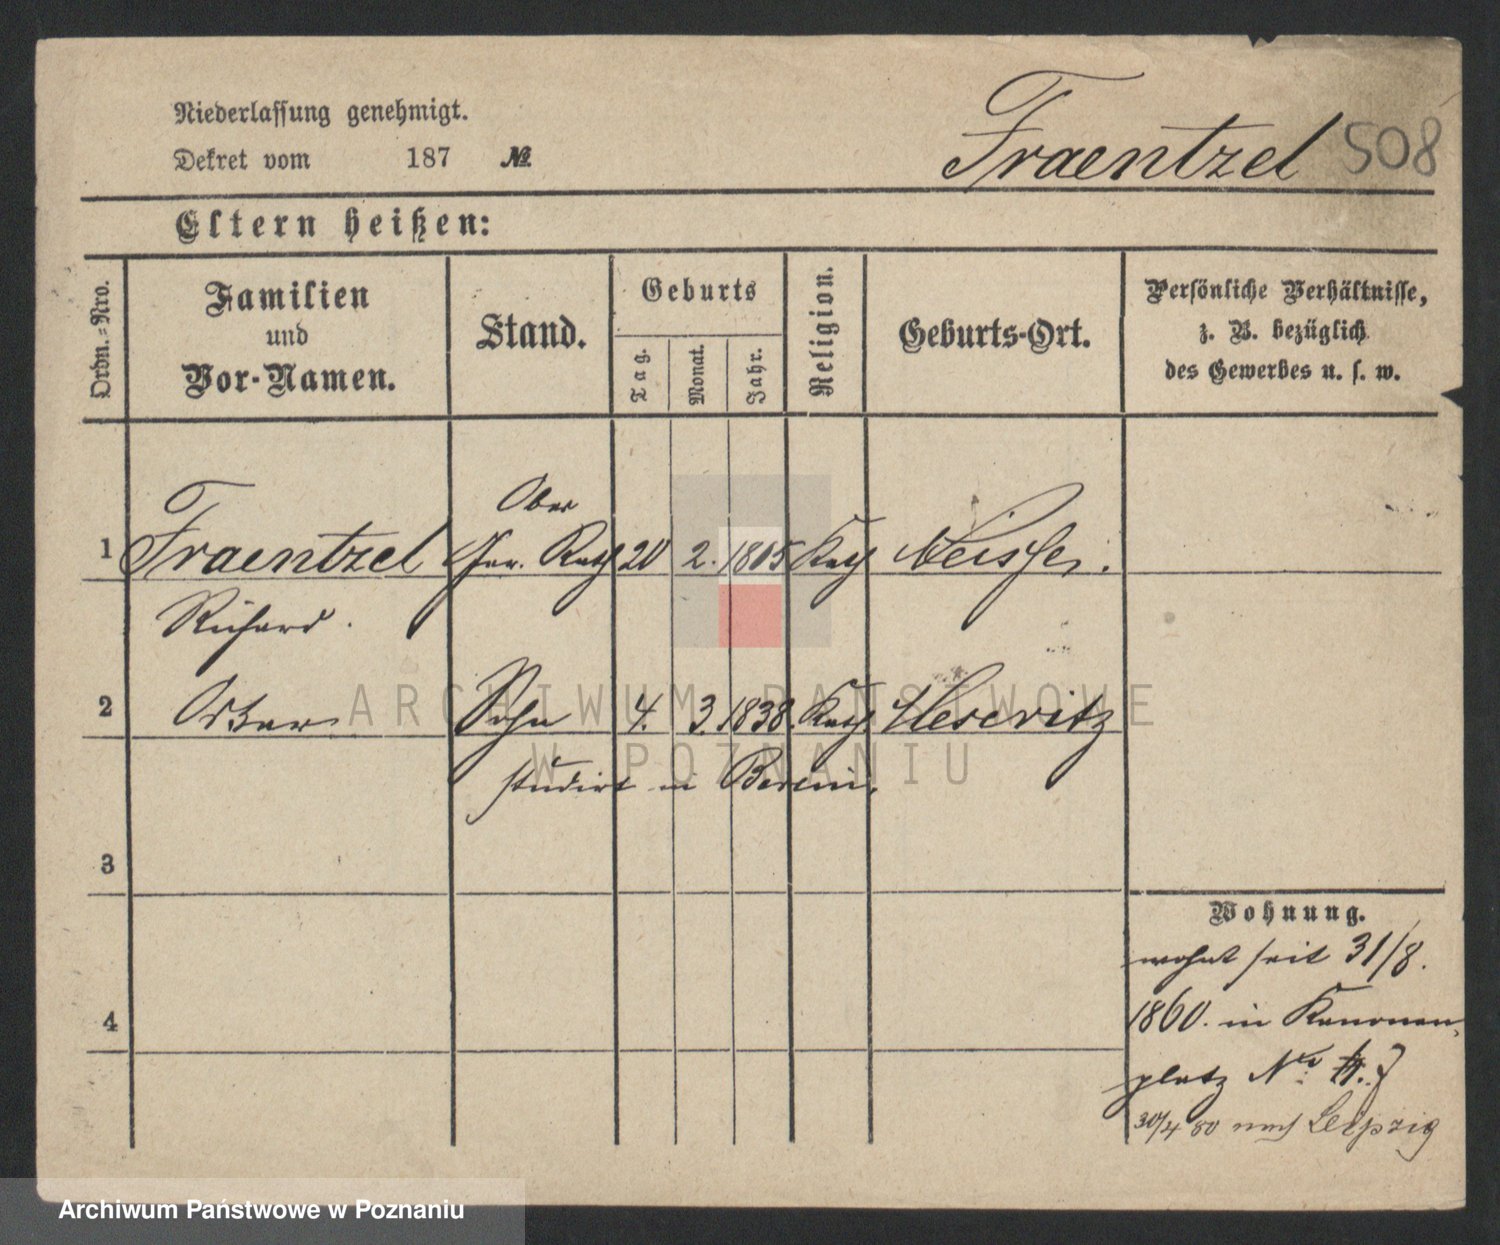 Niederlassung genehmigt.
Dekret vom 187 №
Fraentzel 508
Eltern heißen:
Ordn.-Nro.
Familien
und
Vor-Namen.
Stand.
Geburts
Tag.
Monat.
Jahr.
Religion.
Geburts-Ort.
Persönliche Verhältnisse,
z. B. bezüglich
des Gewerbes u. s. w.
Ober
1 Fraentzel Ger. Rath 20 2. 1805 Kath Neisse.
Richard.
2 Oskar Sohn 4. 3. 1838. Kath. Meseritz
studirt in Berlin.
3
4
Wohnung.
wohnt seit 31/8.
1860. in Kanonen
platz No 7
30/4 80 nach Leipzig
ARCHIWUM PAŃSTWOWE
W POZNANIU
Archiwum Państwowe w Poznaniu